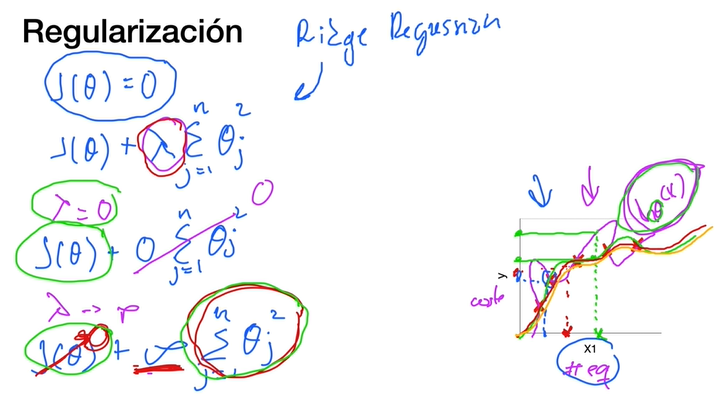 Regularización
Ridge Regression
J(θ) = 0
J(θ) + λ Σ_{j=1}^{n} θ_j^2
λ = 0
0
J(θ) + 0 Σ_{j=1}^{n} θ_j^2
λ →
J(θ) + ∞ Σ_{j=1}^{n} θ_j^2
h_θ(x)
y
X1
# eq